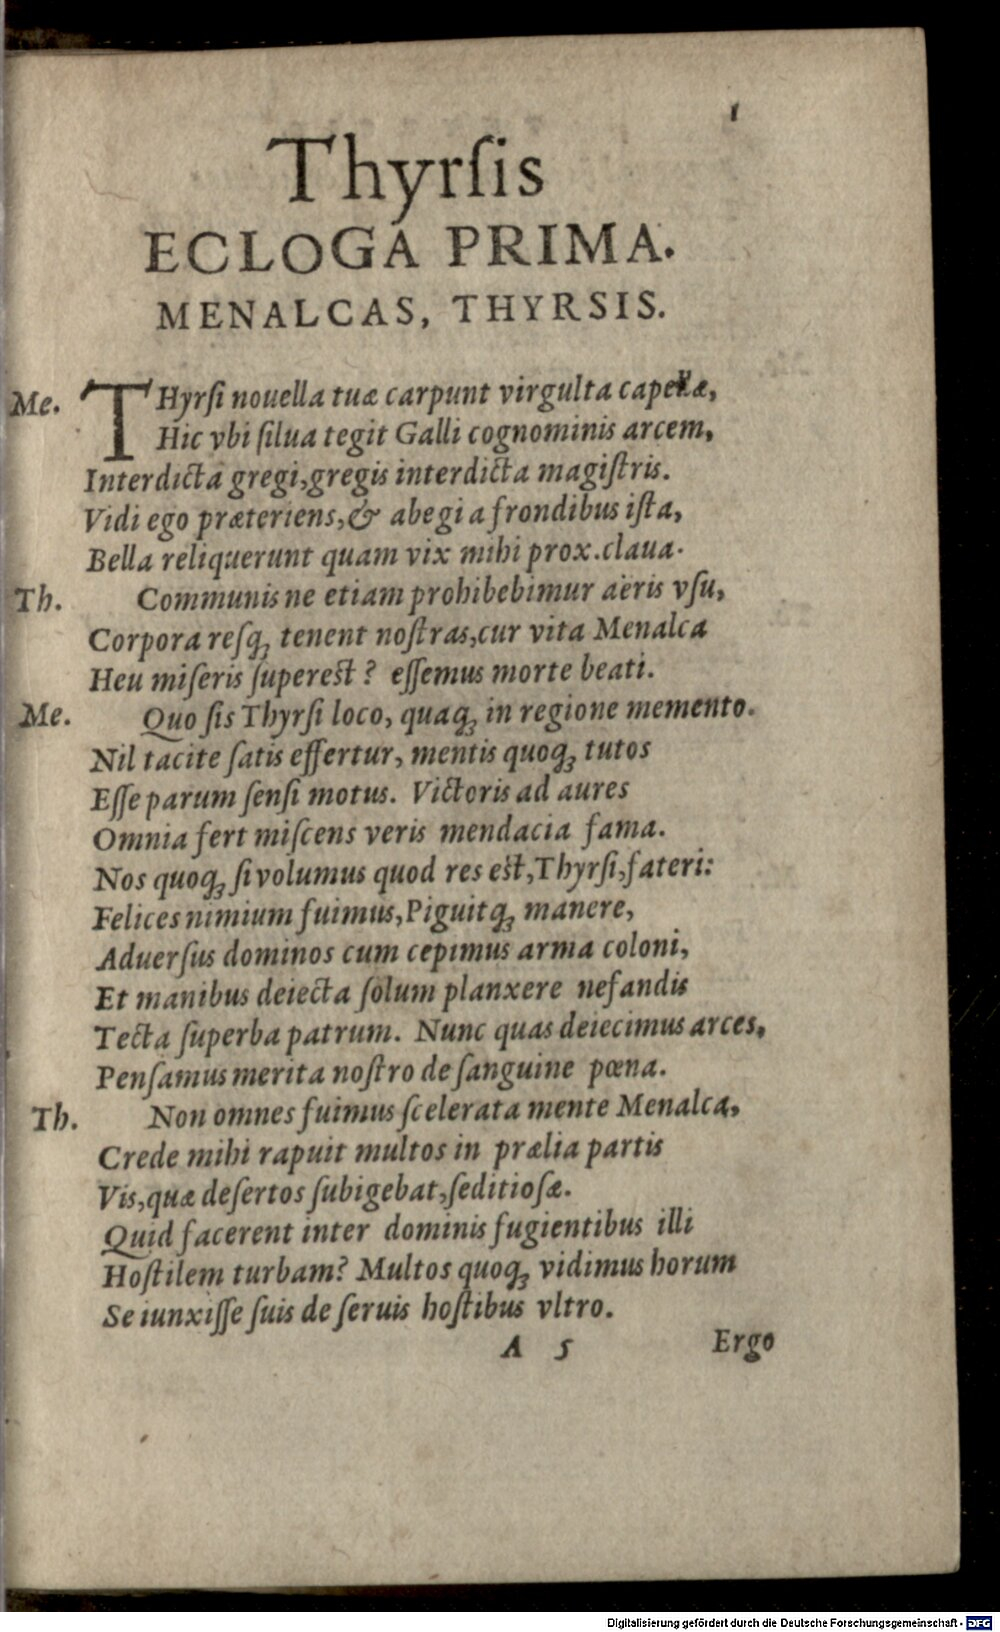 1
Thyrſis
ECLOGA PRIMA.
MENALCAS, THYRSIS.
Me. THyrſi nouella tuæ carpunt virgulta capellæ,
Hic vbi ſilua tegit Galli cognominis arcem,
Interdicta gregi, gregis interdicta magiſtris.
Vidi ego præteriens, & abegi a frondibus iſta,
Bella reliquerunt quam vix mihi prox. claua.
Th. Communis ne etiam prohibebimur aëris vſu,
Corpora reſqꝫ tenent noſtras, cur vita Menalca
Heu miſeris ſupereſt? eſſemus morte beati.
Me. Quo ſis Thyrſi loco, quaqꝫ in regione memento.
Nil tacite ſatis effertur, mentis quoqꝫ tutos
Eſſe parum ſenſi motus. Victoris ad aures
Omnia fert miſcens veris mendacia fama.
Nos quoqꝫ ſi volumus quod res eſt, Thyrſi, fateri:
Felices nimium fuimus, Piguitqꝫ manere,
Aduerſus dominos cum cepimus arma coloni,
Et manibus deiecta ſolum planxere nefandis
Tecta ſuperba patrum. Nunc quas deiecimus arces,
Penſamus merita noſtro de ſanguine pœna.
Th. Non omnes fuimus ſcelerata mente Menalca,
Crede mihi rapuit multos in prælia partis
Vis, quæ deſertos ſubigebat, ſeditioſæ.
Quid facerent inter dominis fugientibus illi
Hoſtilem turbam? Multos quoqꝫ vidimus horum
Se iunxiſſe ſuis de ſeruis hoſtibus vltro.
A 5 Ergo
Digitalisierung gefördert durch die Deutsche Forschungsgemeinschaft - DFG